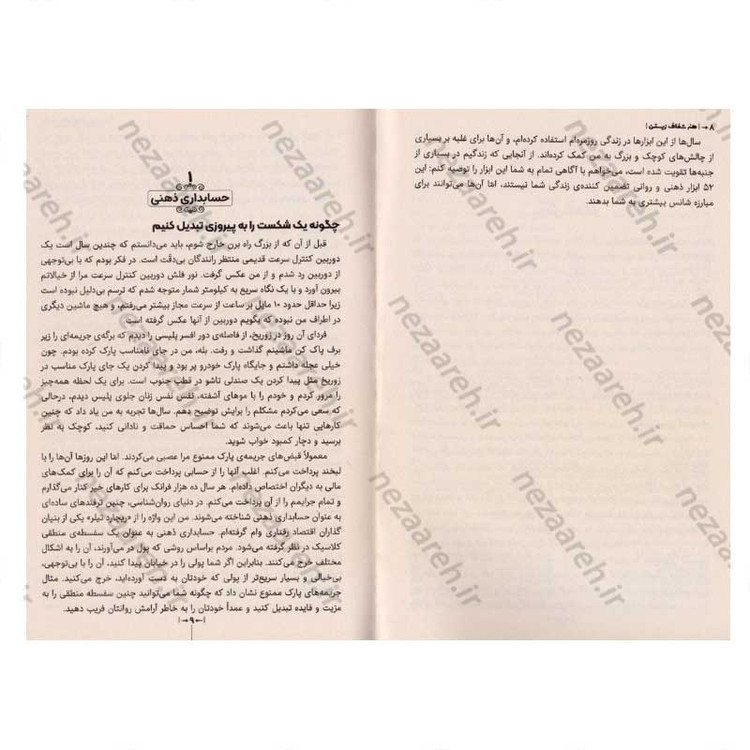 ۸ → | هنر شفاف زیستن |
سال‌ها از این ابزارها در زندگی روزمره‌ام استفاده کرده‌ام، و آن‌ها برای غلبه بر بسیاری
از چالش‌های کوچک و بزرگ به من کمک کرده‌اند. از آنجایی که زندگیم در بسیاری از
جنبه‌ها تقویت شده است، می‌خواهم با آگاهی تمام به شما این ابزار را توصیه کنم: این
۵۲ ابزار ذهنی و روانی تضمین کننده‌ی زندگی شما نیستند، امّا آن‌ها می‌توانند برای
مبارزه شانس بیشتری به شما بدهند.
۱
حسابداری ذهنی
چگونه یک شکست را به پیروزی تبدیل کنیم
قبل از آن که از بزرگ راه برن خارج شوم، باید می‌دانستم که چندین سال است یک
دوربین کنترل سرعت قدیمی منتظر رانندگان بی‌دقّت است. در فکر بودم که با بی‌توجهی
از دوربین رد شدم و از من عکس گرفت. نور فلش دوربین کنترل سرعت مرا از خیالاتم
بیرون آورد و با یک نگاه سریع به کیلومتر شمار متوجه شدم که ترسم بی‌دلیل نبوده است
زیرا حداقل حدود ۱۰ مایل بر ساعت از سرعت مجاز بیشتر می‌رفتم، و هیچ ماشین دیگری
در اطراف من نبوده که بگویم دوربین از آنها عکس گرفته است.
فردای آن روز در زوریخ، از فاصله‌ی دور افسر پلیسی را دیدم که برگه‌ی جریمه‌ای را زیر
برف پاک کن ماشینم گذاشت و رفت. بله، من در جای نامناسب پارک کرده بودم. چون
خیلی عجله داشتم و جایگاه پارک خودرو پر بود و پیدا کردن یک جای پارک مناسب در
زوریخ مثل پیدا کردن یک صندلی تاشو در قطب جنوب است. برای یک لحظه همه‌چیز
را مرور کردم و خودم را با موهای آشفته، نفس نفس زنان جلوی پلیس دیدم، درحالی
که سعی می‌کردم مشکلم را برایش توضیح دهم. سال‌ها تجربه به من یاد داد که چنین
کارهایی تنها باعث می‌شوند که شما احساس حماقت و نادانی کنید، کوچک به نظر
برسید و دچار کمبود خواب شوید.
معمولاً قبض‌های جریمه‌ی پارک ممنوع مرا عصبی می‌کردند. امّا این روزها آن‌ها را با
لبخند پرداخت می‌کنم. اغلب آنها را از حسابی پرداخت می‌کنم که آن را برای کمک‌های
مالی به دیگران اختصاص داده‌ام. هر سال ده هزار فرانک برای کارهای خیر کنار می‌گذارم
و تمام جرایمم را از آن پرداخت می‌کنم. در دنیای روان‌شناسی، چنین ترفندهای ساده‌ای
به عنوان حسابداری ذهنی شناخته می‌شوند. من این واژه را از «ریچارد تیلر» یکی از بنیان
گذاران اقتصاد رفتاری وام گرفته‌ام. حسابداری ذهنی به عنوان یک سفسطه‌ی منطقی
کلاسیک در نظر گرفته می‌شود. مردم براساس روشی که پول در می‌آورند، آن را به اشکال
مختلف خرج می‌کنند. بنابراین اگر شما پولی را در خیابان پیدا کنید، آن را با بی‌توجهی،
بی‌خیالی و بسیار سریع‌تر از پولی که خودتان به دست آورده‌اید، خرج می‌کنید. مثال
جریمه‌های پارک ممنوع نشان داد که چگونه شما می‌توانید چنین سفسطه منطقی را به
مزیت و فایده تبدیل کنید و عمداً خودتان را به خاطر آرامش روانتان فریب دهید.
| → ۹ ← |
nezaareh.ir
nezaareh.ir
nezaareh.ir
nezaareh.ir
nezaareh.ir
nezaareh.ir
nezaareh.ir
nezaareh.ir